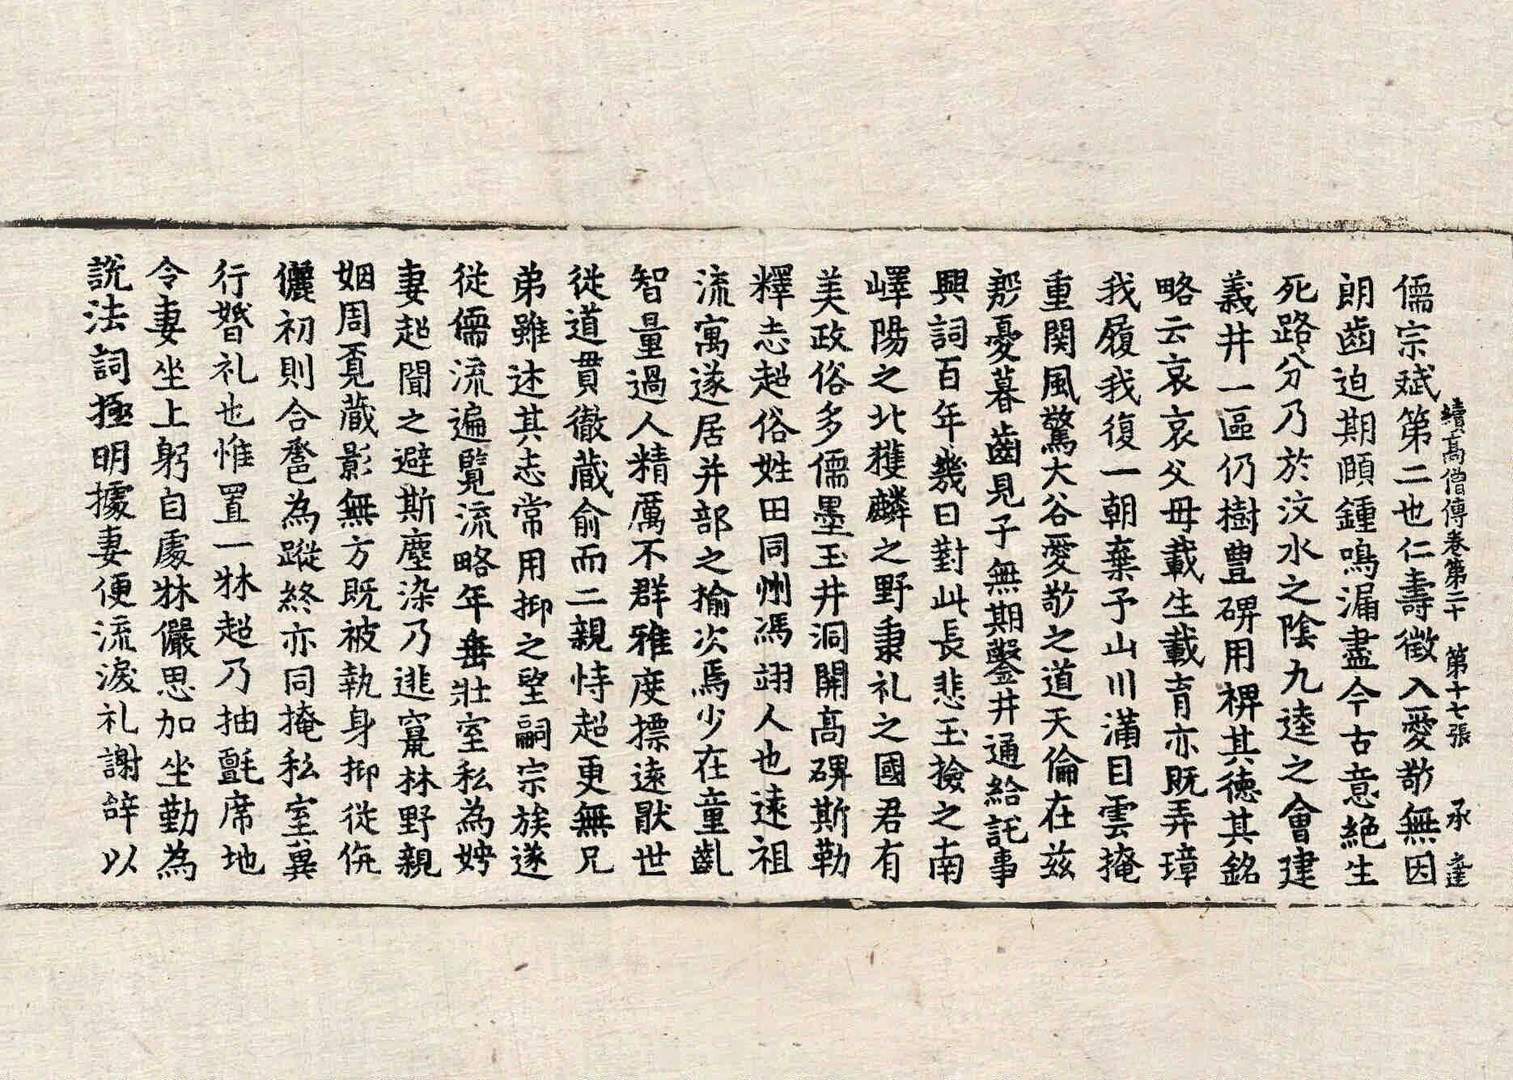 續高僧傳卷第二十　第十七張　承　達
儒宗斌第二也仁壽徵入愛敬無因
朗齒迫期頤鍾鳴漏盡今古意絕生
死路分乃於汶水之陰九逵之會建
義井一區仍樹豊碑用裨其德其銘
略云哀哀父母載生載育亦旣弄璋
我履我復一朝棄予山川滿目雲掩
重関風驚大谷愛敬之道天倫在茲
憂暮齒見子無期鑿井通給託事
興詞百年幾日對此長悲玉撿之南
嶧陽之北獲麟之野秉礼之國君有
美政俗多儒墨玉井洞開高碑斯勒
釋志超俗姓田同州馮翊人也遠祖
流寓遂居并部之揄次焉少在童齓
智量過人精厲不群雅度摽遠猒世
從道貫徹藏俞而二親恃超更無兄
弟雖述其志常用抑之望嗣宗族遂
從儒流遍覽流略年垂壯室私為娉
妻超聞之避斯塵染乃逃竄林野親
姻周覔藏影無方旣被執身抑從伉
儷初則合卺為蹤終亦同掩私室冀
行婚礼也惟置一牀超乃抽氈席地
令妻坐上躬自處牀儼思加坐勤為
說法詞極明據妻便流淚礼謝辞以